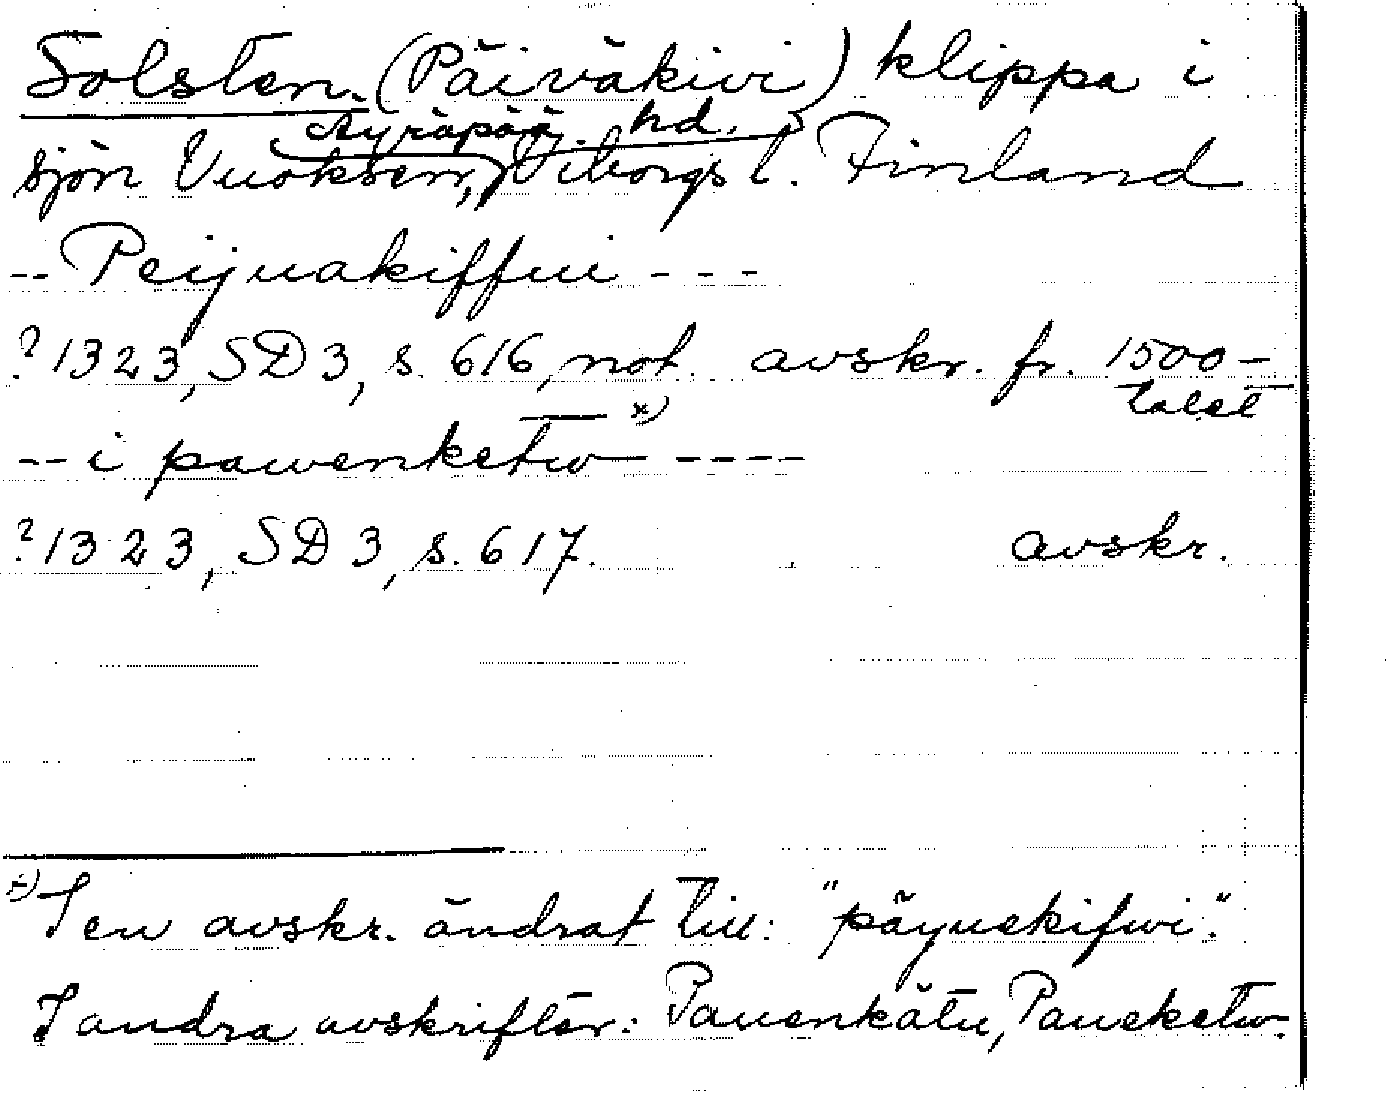 Solsten. (Päiväkivi) klippa i
Äyräpää hd.
sjön Vuoksen, Viborgs l. Finland
-- Peijuakiffui - - -
? 1323, SD 3, s. 616, not. avskr. fr. 1500-
talet
-- i pawenketw x) ----
? 1323, SD 3, s. 617. avskr.
x) I en avskr. ändrat till: "päyuekifwi".
I andra avskrifter: Pauenkätu, Paueketw.